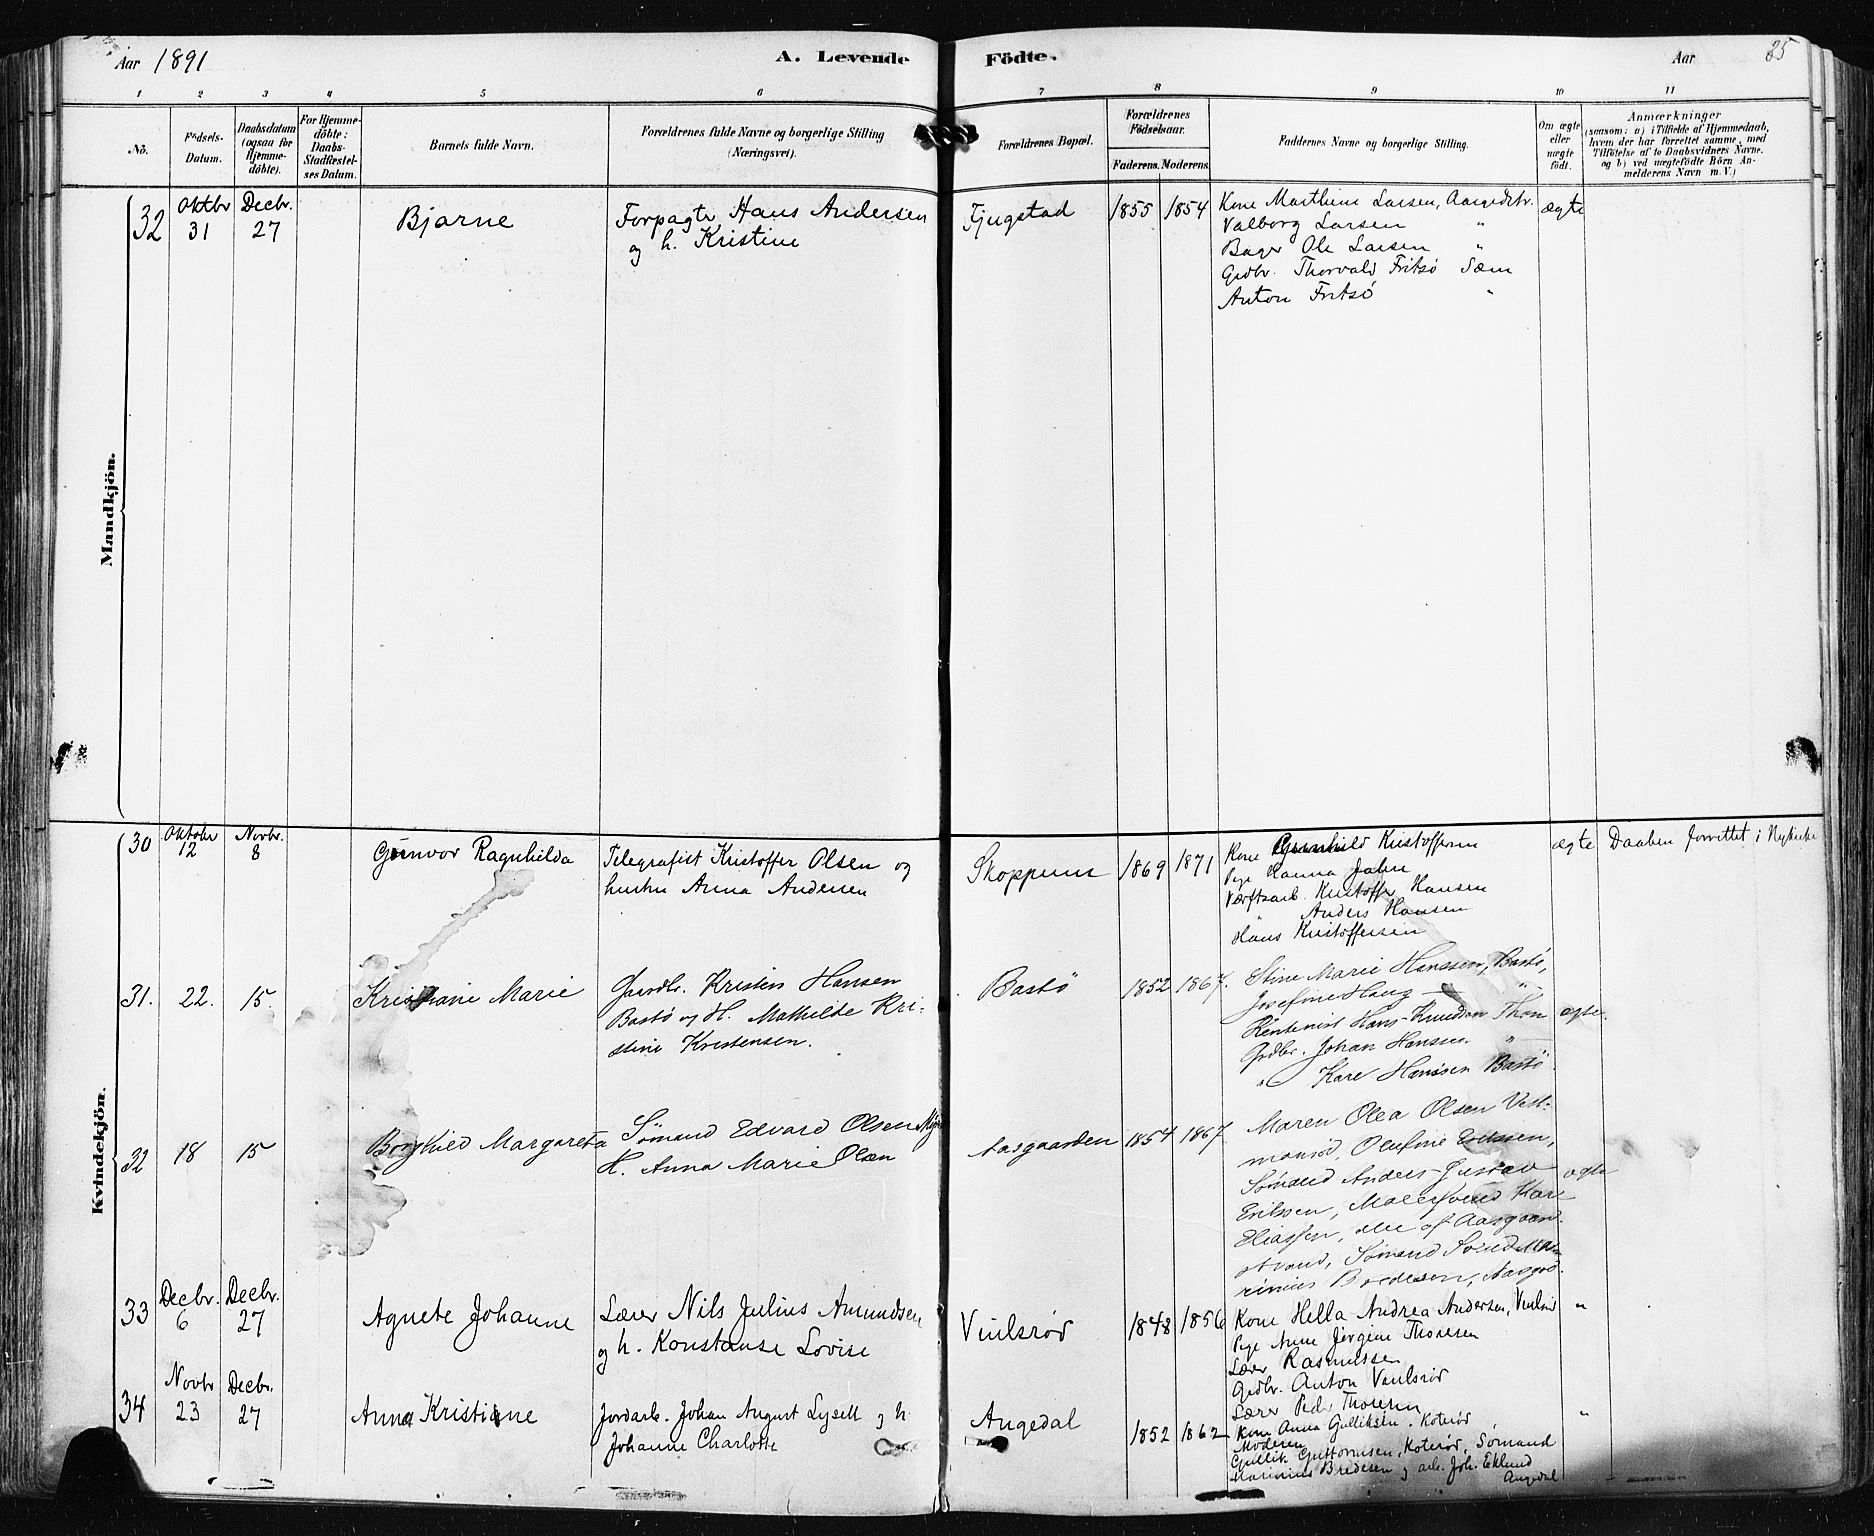 Aar 1891
A. Levende
Födte.
Aar
25
1 2 3 4 5 6 7 8 9 10 11
Nō.
Födsels-
Datum.
Daabsdatum
(ogsaa for
Hjemme-
döbte).
For Hjemme-
döbte:
Daabs-
Stadfæstel-
ses Datum.
Barnets fulde Navn.
Forældrenes fulde Navne og borgerlige Stilling
(Næringsvei).
Forældrenes Bopæl.
Forældrenes
Födselsaar.
Faderens. Moderens.
Faddernes Navne og borgerlige Stilling.
Om ægte
eller
uægte
födt.
Anmærkninger
(saasom: a) i Tilfælde af Hjemmedaab,
hvem der har forrettet samme, med
Tilföielse af to Daabsvidners Navne,
og b) ved uægtefödte Börn An-
melderens Navn m. V.)
Mandkjön.
32
Oktbr
31
Decbr.
27
Bjarne
Forpagter Hans Andersen
og h. Kristine
Fjugstad
1855 1854
Kone Marthine Larsen, Aasgrdstr.
Valborg Larsen "
Bager Ole Larsen "
Grdbr. Thorvald Fritsø Sæm
Anton Fritsø "
ægte
Kvindekjön.
30
Oktober
12
Novbr.
8
Gunvor Ragnhilda
Telegrafist Kristoffer Olsen og
hustru Anna Andersen
Skoppum
1869 1871
Kone Gunhild Kristoffersen
Pige Hanna
Værftsarb. Kristoffer Hansen
" Anders Hansen
Hans Kristoffersen
ægte
Daaben forrettet i Nykirke
31. 22. 15.
Kristiane Marie
Gaardbr. Kristen Hansen
Bastø og H. Mathilde Kri-
stine Kristensen.
Bastø
1852 1867.
Stine Marie Hanssen, Bastø,
Josefine Haug "
Rentenist Hans Knudsen Thon
Grdbr. Johan Hansen "
" Kare Hanssen Bastø
ægte.
32 18 15
Borghild Margareta
Sømand Edvard Olsen
H. Anna Marie Olsen
Aasgaarden
1854 1867
Maren Olea Olsen
Olufine Erikssen,
Sømand Anders Gustav
Erikssen, Maler
Eliassen, alle af Aasgaard-
strand, Sømand Svend Ma-
rinius Bredesen, Aasgrd.
ægte
33
Decbr.
6
Decbr.
27
Agnete Johanne
Lærer Nils Julius Amundsen
og h. Konstanse Lovise
Viulsrød
1848 1856
Kone Hella Andrea Andersen, Viulsrød
Pige Anne Jørgine Thoresen
Lærer Rasmussen
Grdbr. Anton Viulsrød
Lærer Peder Thoresen
"
34
Novbr
23
Decbr.
27
Anna Kristiane
Jordarb. Johan August Lysell og h
Johanne Charlotte
Augedal
1852 1862
Kone Anna Gulliksen. Koterød
Moderen
Gullik Guttormsen, Koterød, Sømand
Marinius Bredesen og arb. Joh. Eklund
Augedal
"